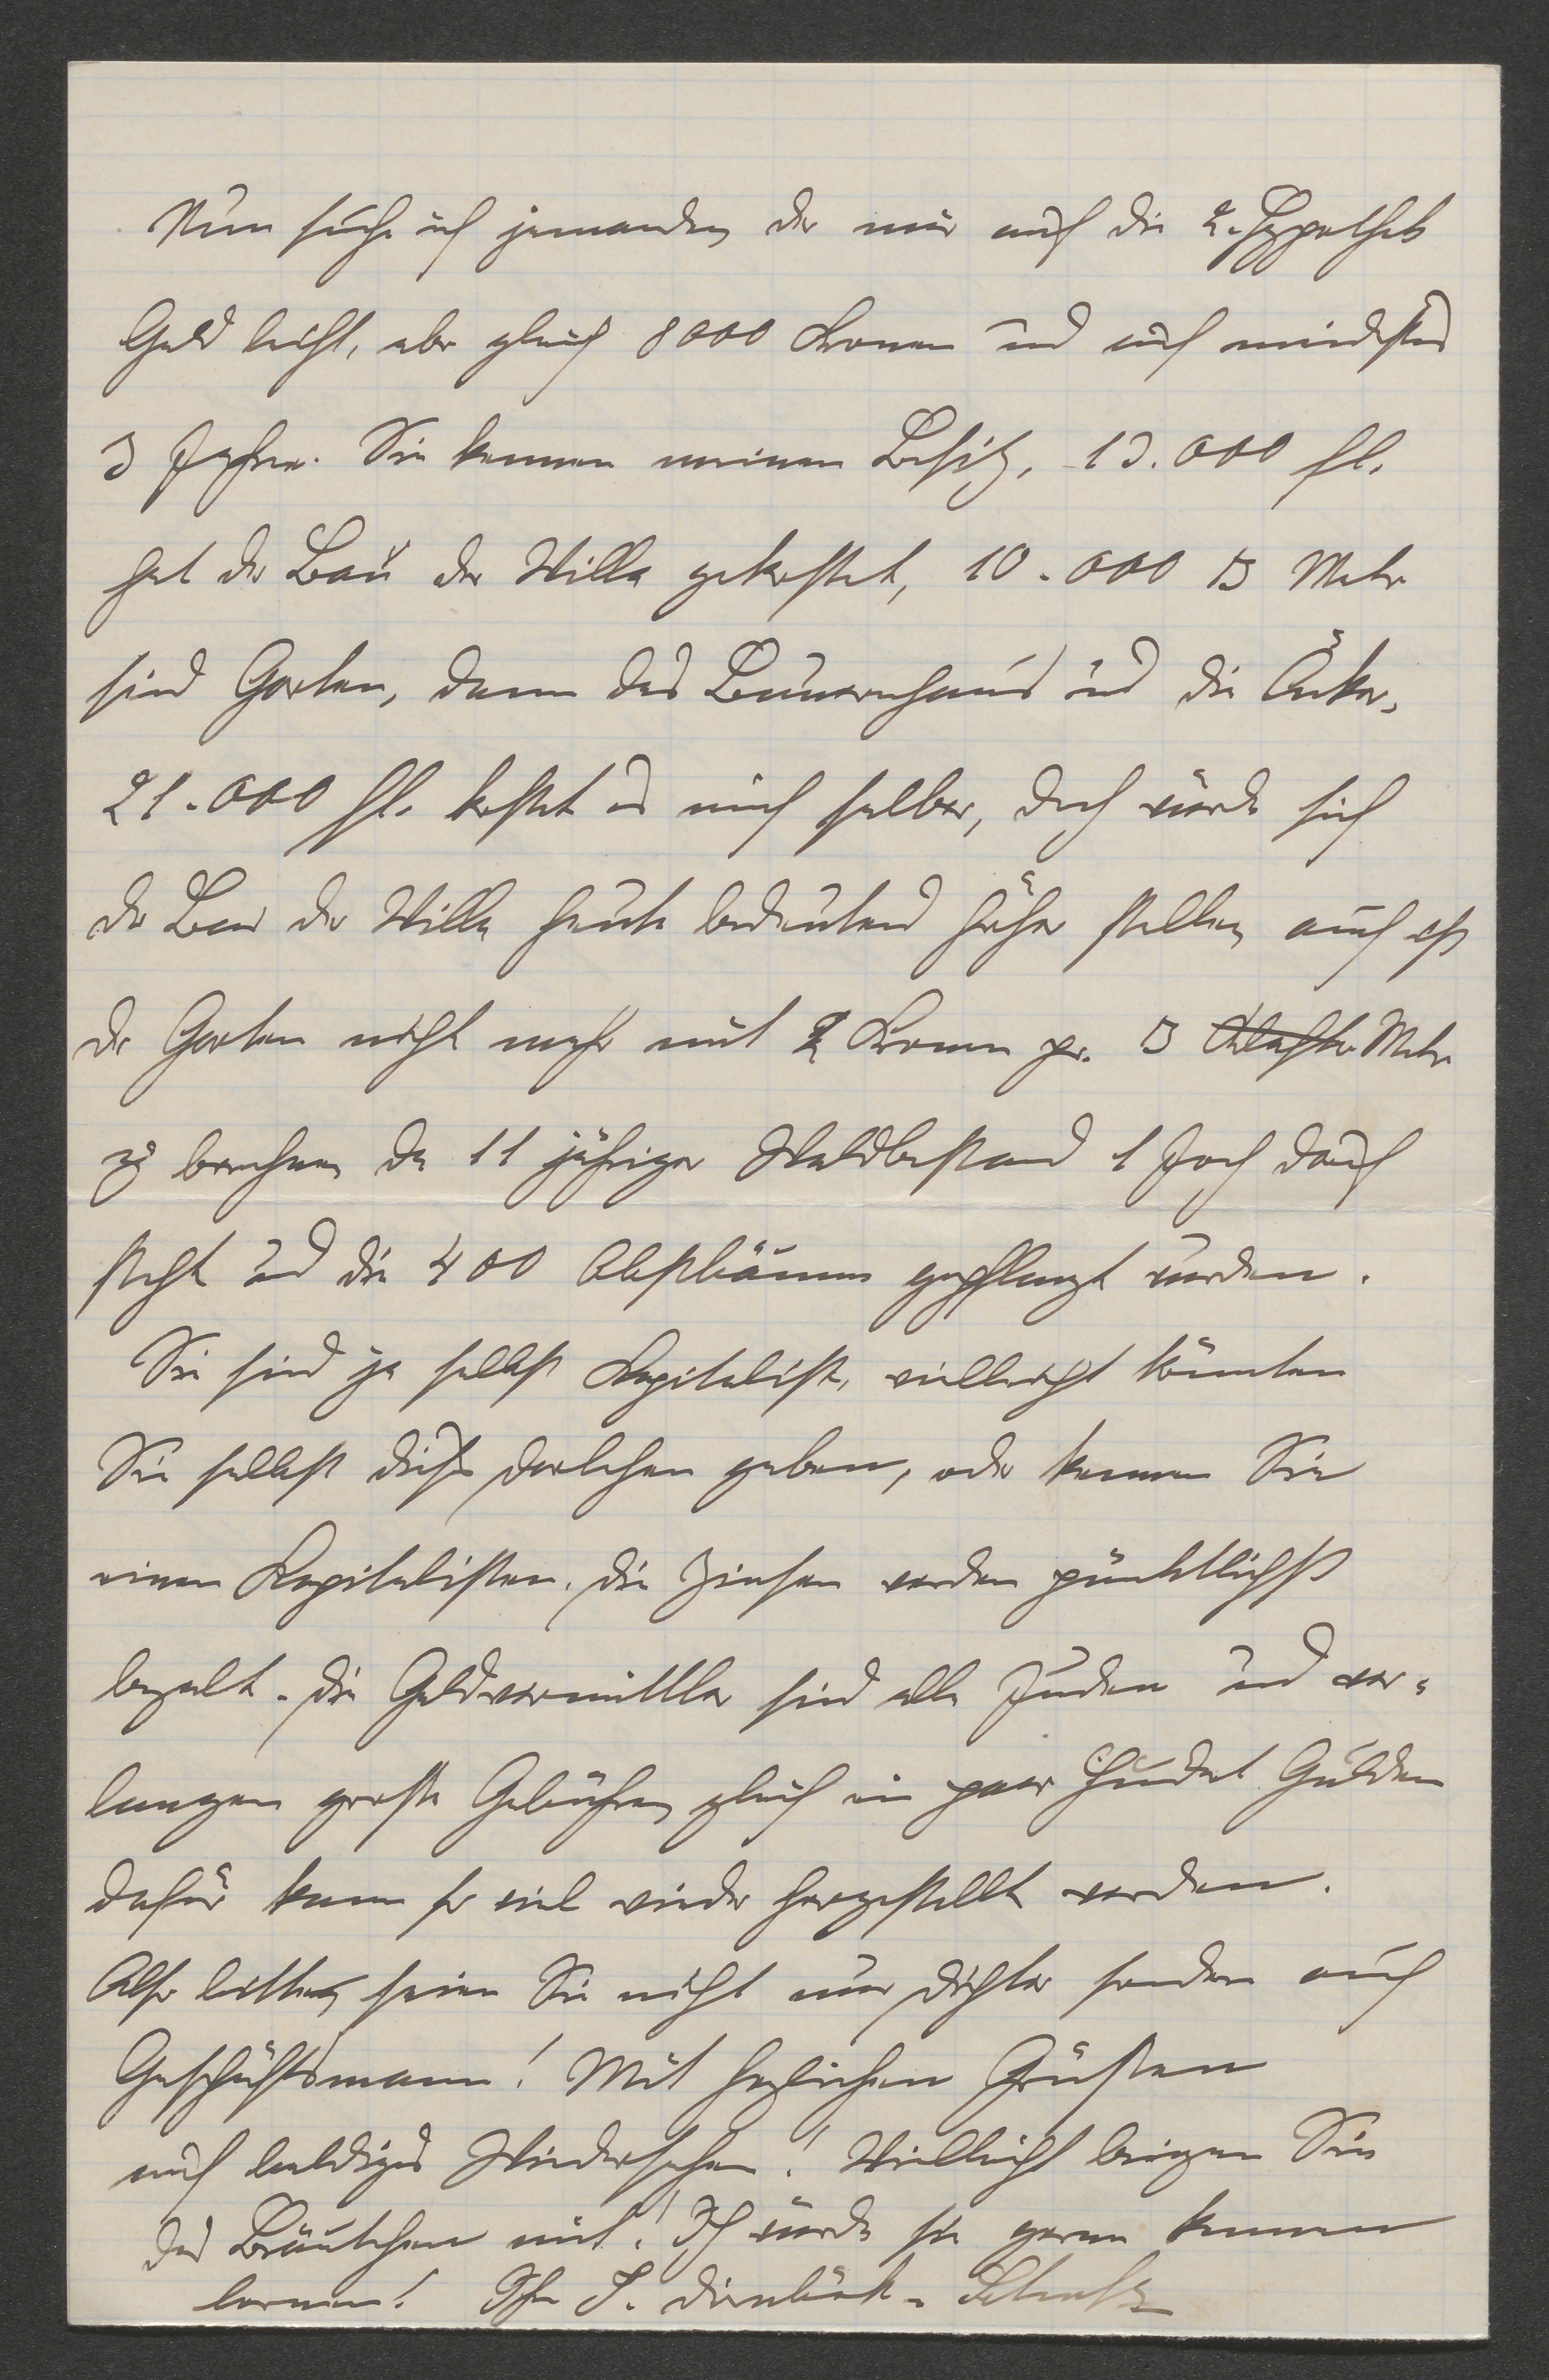 Nun suche ich jemanden der mir auf die 2. Hypothek
Geld leiht, aber gleich 8000 Kronen und auf mindestens
3 Jahre. Sie kennen meinen Besitz, 13.000 fl.
hat der Bau der Villa gekostet, 10.000 □ Meter
sind Garten, dann das Bauernhaus und die Äcker,
21.000 fl. kostet es mich selber, doch würde sich
der Bau der Villa heute bedeutend höher stellen auch ist
der Garten nicht mehr mit 2 Kronen pr. □ Klafter Meter
zu berechnen da 11 jähriger Waldbestand 1 Joch darauf
steht und die 400 Obstbäume gepflanzt wurden.
Sie sind ja selbst Kapitalist, vielleicht könnten
Sie selbst dieses Darlehen geben, oder kennen Sie
einen Kapitalisten. Die Zinsen werden pünktlichst
bezalt. Die Geldvermittler sind alle Juden und ver-
langen große Gebühren gleich ein paar Hundert Gulden
dafür kann so viel wieder hergestellt werden.
Also bitte seien Sie nicht nur Dichter sondern auch
Geschäftsmann! Mit herzlichen Grüßen
auf baldiges Wiedersehen! Vielleicht bringen Sie
das Bräutchen mit! Ich würde sie gerne kennen
lernen! Ihre S. Dirnböck-Schulz